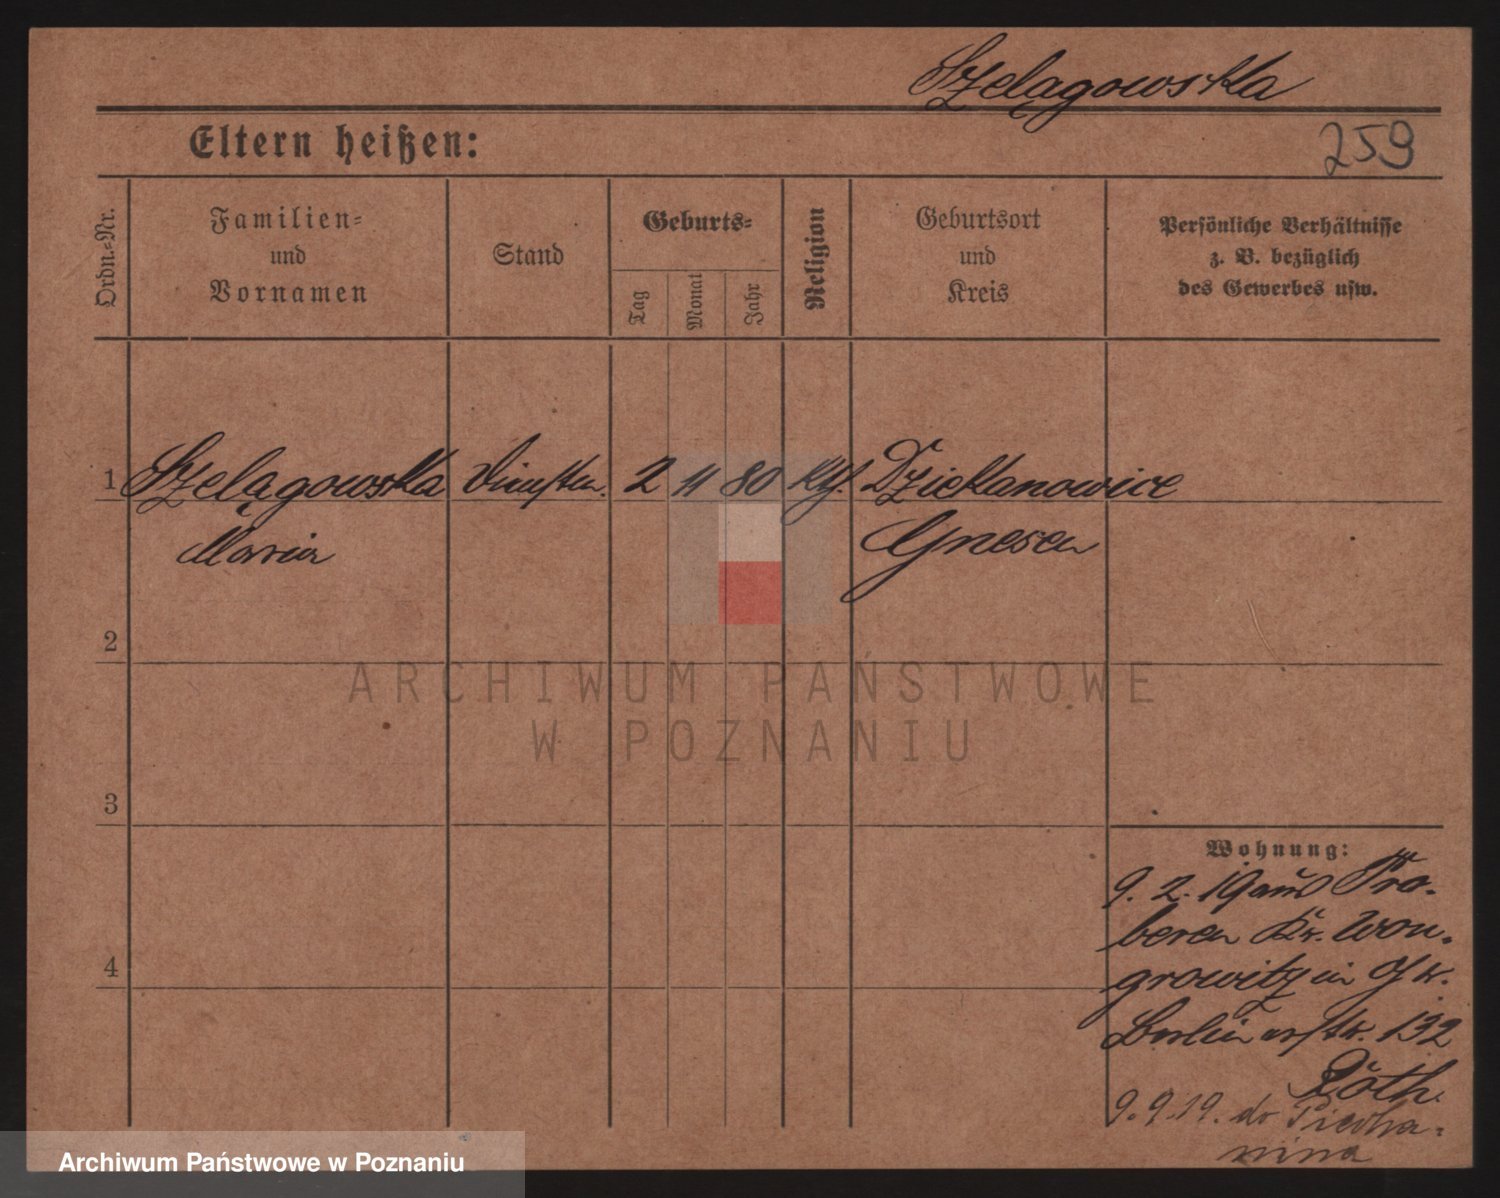 Szelągowska
Eltern heißen:
259
Ordn.-Nr.
Familien-
und
Vornamen
Stand
Geburts-
Tag
Monat
Jahr
Religion
Geburtsort
und
Kreis
Persönliche Verhältnisse
z. B. bezüglich
des Gewerbes usw.
1 Szelągowska 2 11 80 Kth. Dziekanowice
Maria Gnesen
2
3
4
ARCHIWUM PAŃSTWOWE
W POZNANIU
Wohnung:
9. 2. 19 aus Pra-
beren Kr. Won-
growitz in
Berlinerstr. 132
Röth.
9. 9. 19. do Piecha-
nina
Archiwum Państwowe w Poznaniu